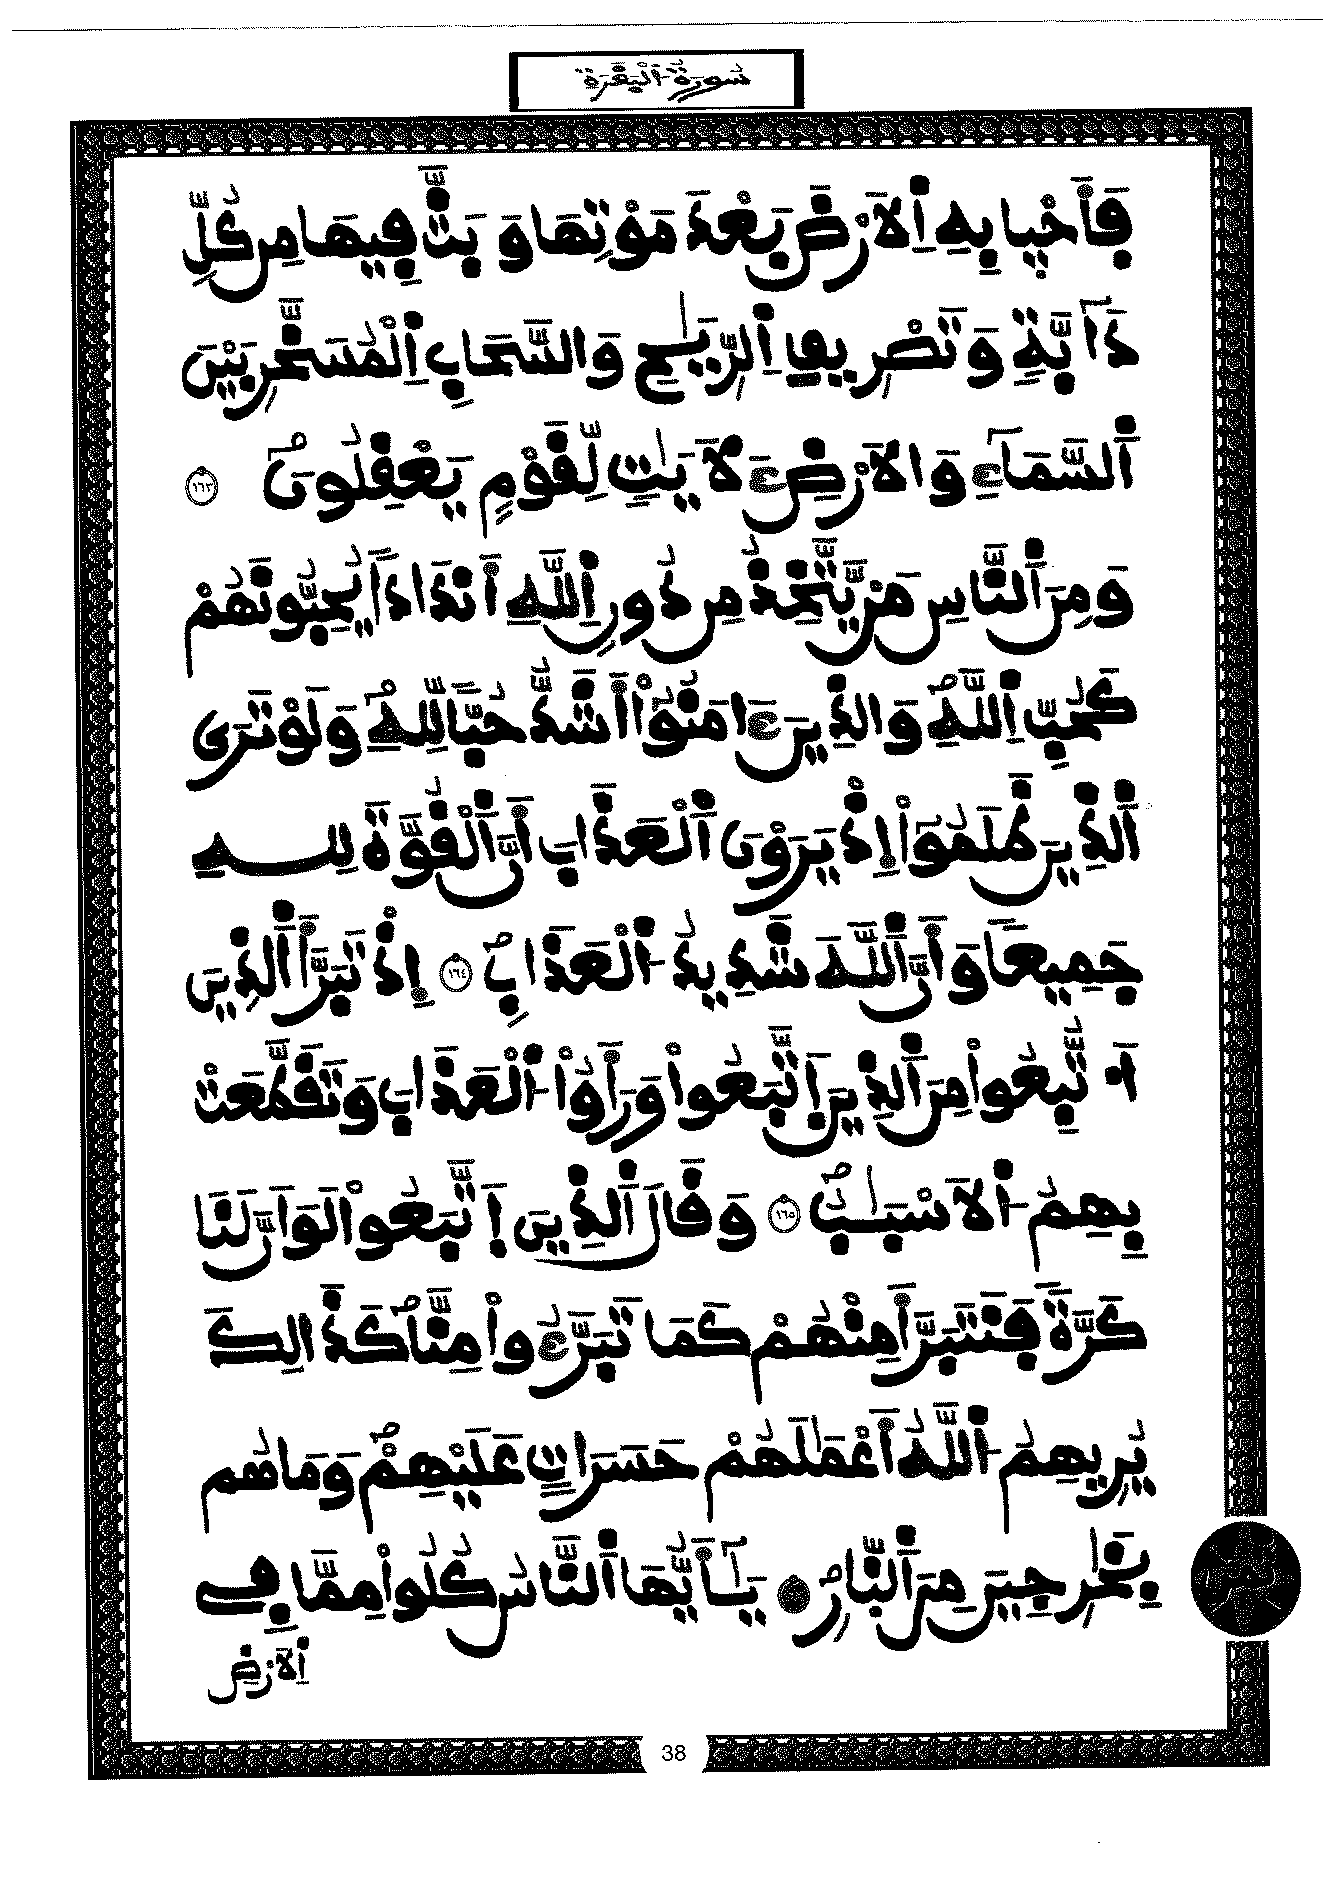 سورة البقرة
فَأَحْيا بِهِ اِلَارْضَ بَعْدَ مَوْتِهَا وَبَثَّ فِيهَا مِن كُلِّ
دَآبَّةٍ وَتَصْرِيفِ اِلرِّيَـٰحِ وَالسَّحَابِ اِلْمُسَخَّرِ بَيْنَ
اَلسَّمَآءِ وَالَارْضِ ءَلَايَـٰتٍ لِّقَوْمٍ يَعْقِلُونَ ١٦٣
وَمِنَ اَلنَّاسِ مَنْ يَّتَّخِذُ مِن دُونِ اِللَّهِ أَندَاداً يُحِبُّونَهُمْ
كَحُبِّ اِللَّهِ وَالذِينَ ءَامَنُوٓاْ أَشَدُّ حُبّاً لِّلهِ وَلَوْ تَرَى
اَلذِينَ ظَلَمُوٓاْ إِذْ يَرَوْنَ اَلْعَذَابَ أَنَّ اَلْقُوَّةَ لِلهِ
جَمِيعاً وَأَنَّ اَللَّهَ شَدِيدُ اُلْعَذَابِ ١٦٤ إِذْ تَبَرَّأَ اَلذِينَ
اَتُّبِعُواْ مِنَ اَلذِينَ اَتَّبَعُواْ وَرَأَوُاْ اُلْعَذَابَ وَتَقَطَّعَتْ
بِهِمُ اُلَاسْبَـٰبُ ١٦٥ وَقَالَ اَلذِينَ اَتَّبَعُواْ لَوَ اَنَّ لَنَا
كَرَّةً فَنَتَبَرَّأَ مِنْهُمْ كَمَا تَبَرَّءُواْ مِنَّا كَذَالِكَ
يُرِيهِمُ اُللَّهُ أَعْمَـٰلَهُمْ حَسَرَاتٍ عَلَيْهِمْ وَمَا هُم
بِخَـٰرِجِينَ مِنَ اَلنَّارِ يَـٰٓأَيُّهَا اَلنَّاسُ كُلُواْ مِمَّا فِے
اِلَارْضِ
38